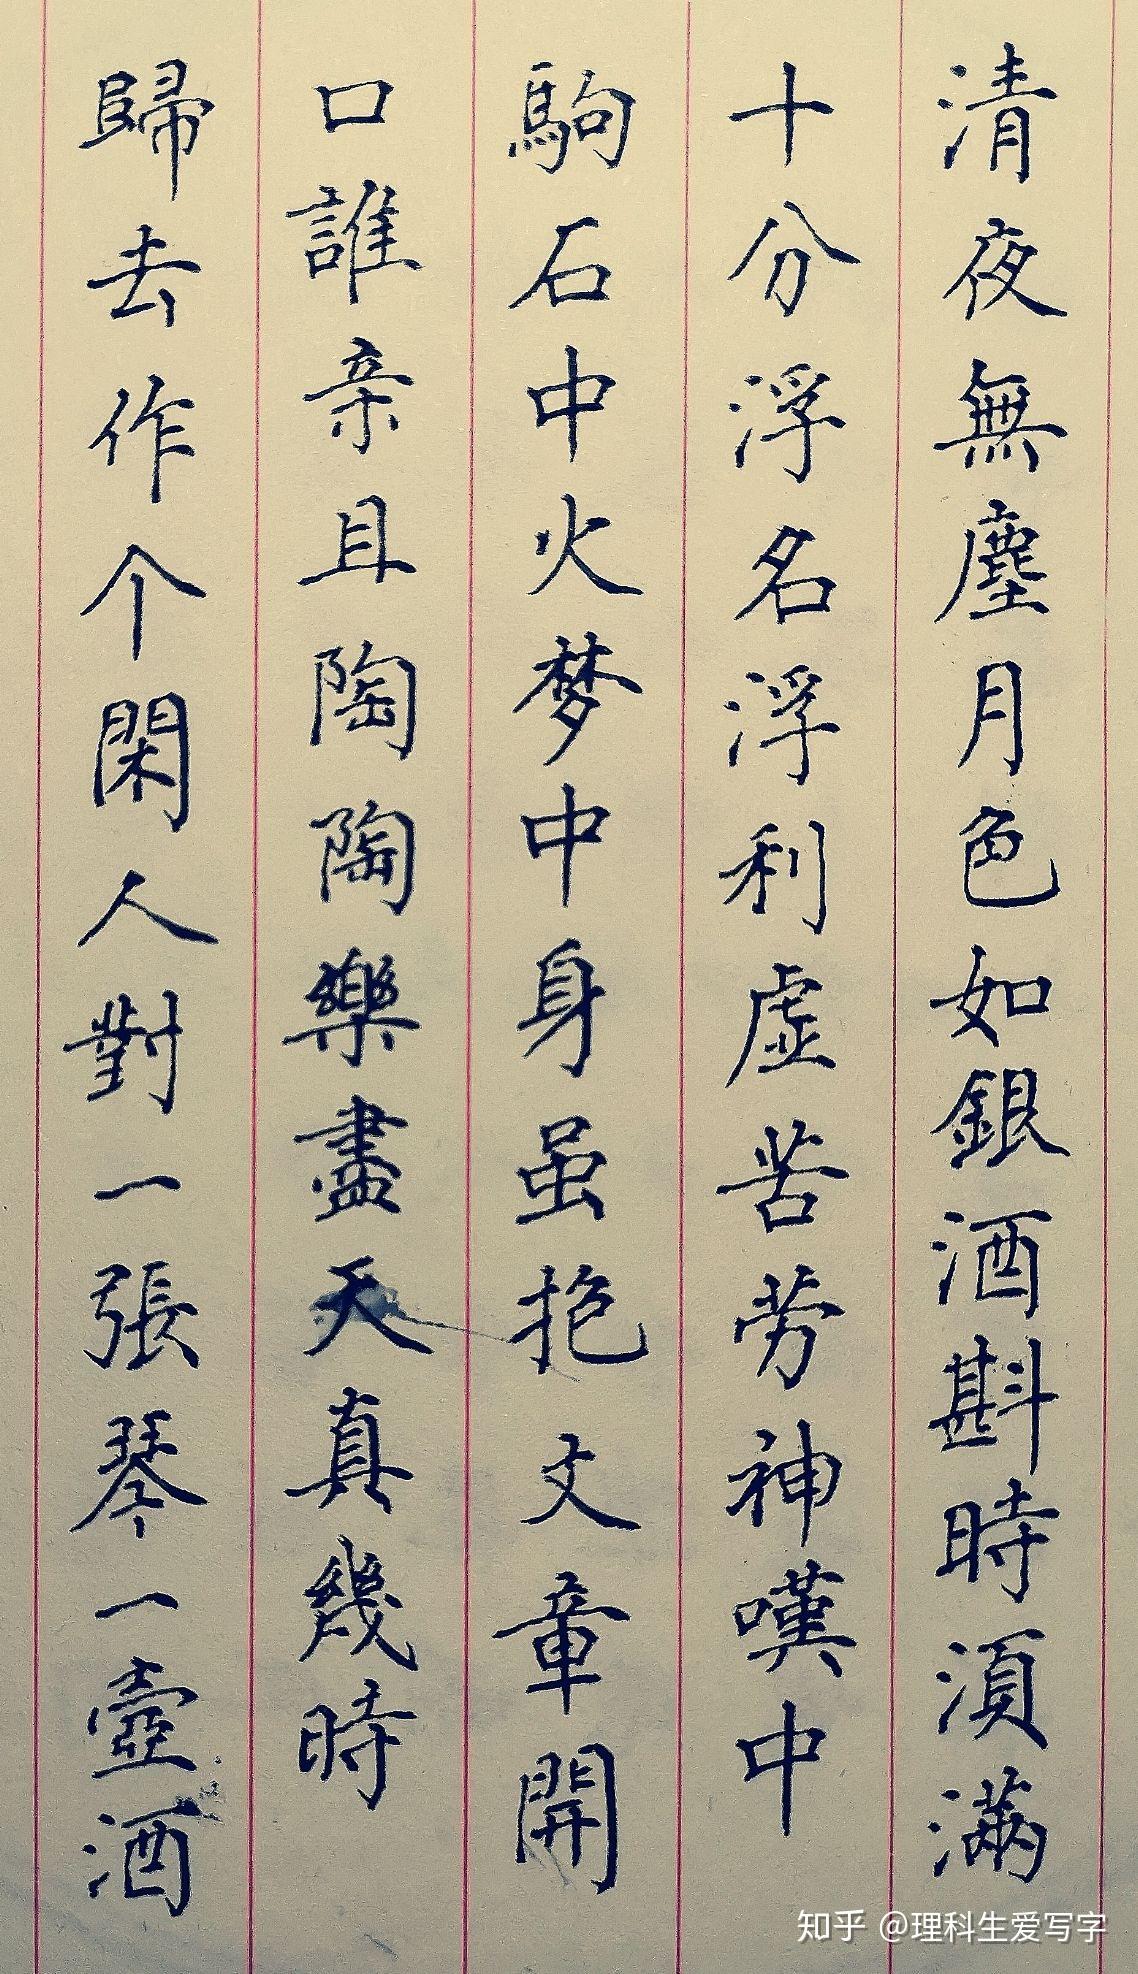 清夜無塵月色如銀酒斟時須滿
十分浮名浮利虛苦劳神嘆中
駒石中火梦中身虽抱文章開
口誰亲且陶陶樂盡天真幾時
歸去作个閑人對一張琴一壺酒
知乎 @理科生爱写字